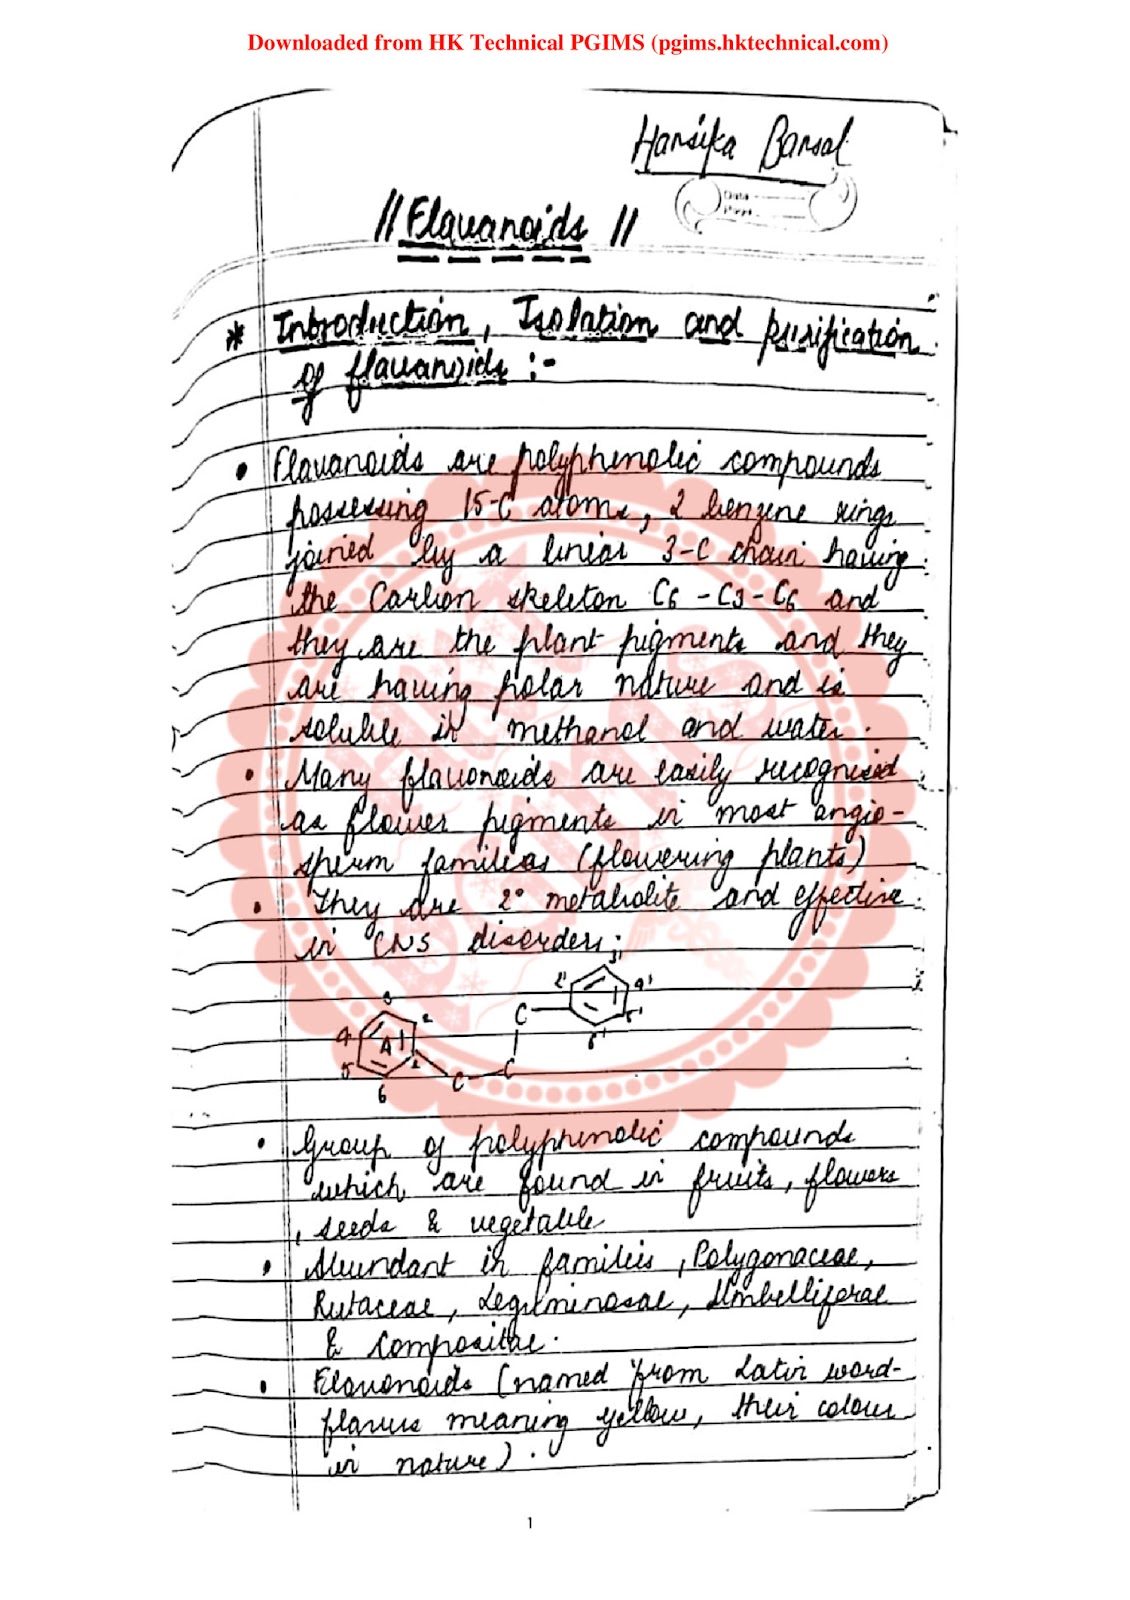 Downloaded from HK Technical PGIMS (pgims.hktechnical.com)
Hansika Bansal
Date
Page
// Flavanoids //
* Introduction, Isolation and purification
of flavanoids :-
• Flavanoids are polyphenolic compounds
possessing 15-C atoms, 2 benzene rings
joined by a linear 3-C chain having
the Carbon skeleton C6 - C3 - C6 and
they are the plant pigments and they
are having polar nature and is
soluble in methanol and water.
• Many flavonoids are easily recognised
as flower pigments in most angio-
sperm families (flowering plants)
• They are 2° metabolite and effective
in CNS disorders;
3'
2' 4'
C 5'
6'
3
4 2
A
5 1 C
C
6
• Group of polyphenolic compounds
which are found in fruits, flowers
, seeds & vegetable
• Abundant in families, Polygonaceae,
Rutaceae, Leguminosae, Umbelliferae
& Compositae.
• Flavonoids (named from Latin word-
flavus meaning yellow, their colour
in nature).
1